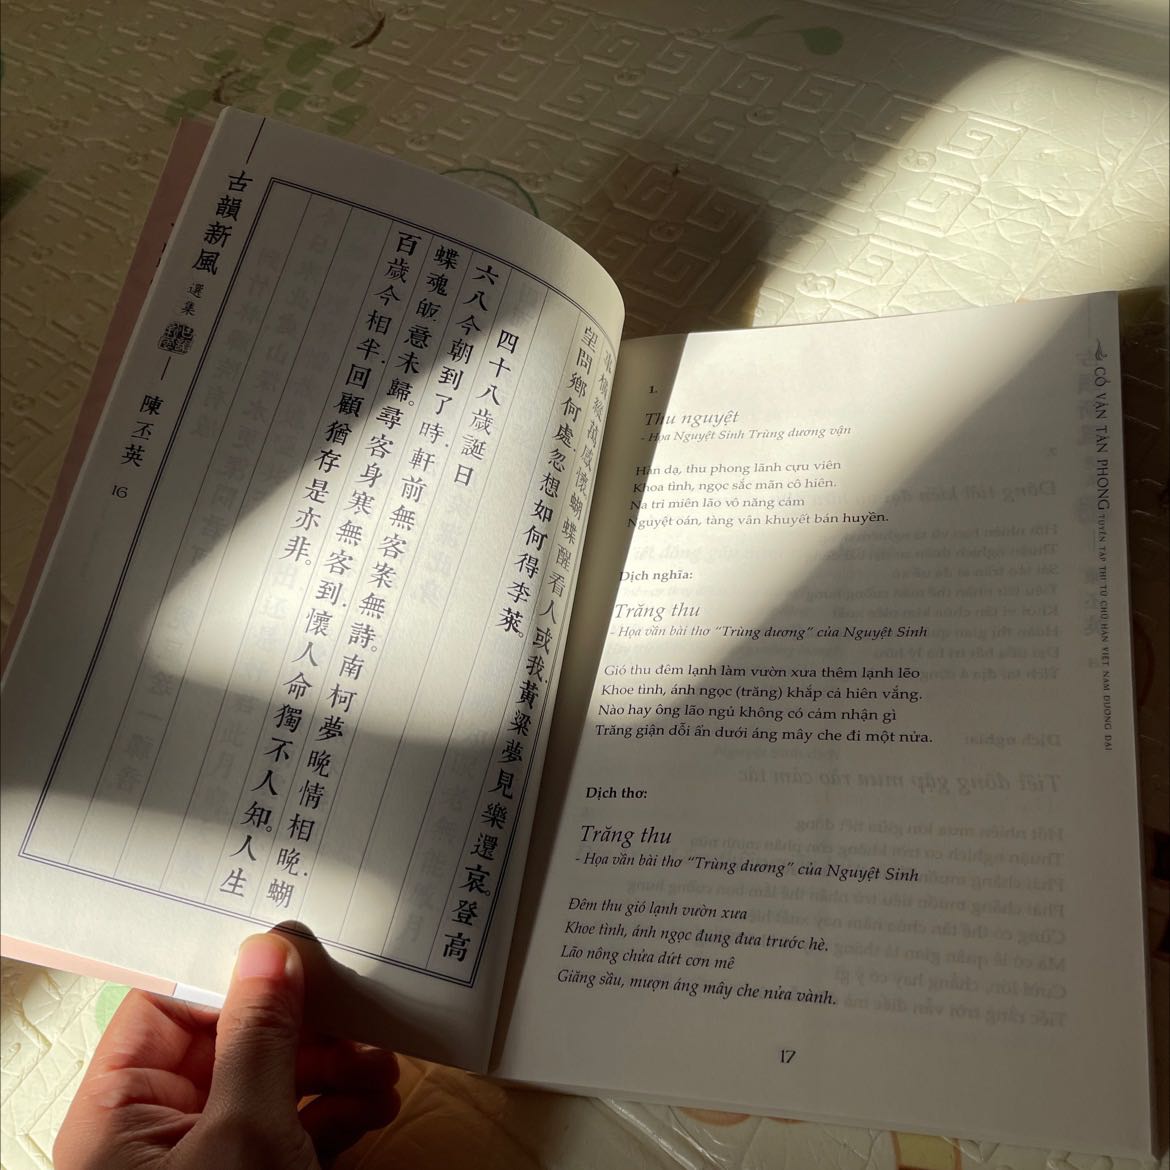 古韻新風
選集
陳丕英
16
望問鄉何處.忽想如何得李萊。登高
懷蝴蝶醒看人或我.黃粱夢見樂還哀。
四十八歲誕日
六八今朝到了時.軒前無客案無詩。南柯夢晚情相晚.蝴
蝶魂皈意未歸。尋客身寒無客到.懷人命獨不人知。人生
百歲今相半.回顧猶存是亦非。
CỔ VẬN TÂN PHONG TUYỂN TẬP THI TỪ CHỮ HÁN VIỆT NAM ĐƯƠNG ĐẠI
1.
Thu nguyệt
- Họa Nguyệt Sinh Trùng dương vận
Hàn dạ, thu phong lãnh cựu viên
Khoa tình, ngọc sắc mãn cô hiên.
Na tri miên lão vô năng cảm
Nguyệt oán, tàng vân khuyết bán huyền.
Dịch nghĩa:
Trăng thu
- Họa vần bài thơ “Trùng dương” của Nguyệt Sinh
Gió thu đêm lạnh làm vườn xưa thêm lạnh lẽo
Khoe tình, ánh ngọc (trăng) khắp cả hiên vắng.
Nào hay ông lão ngủ không có cảm nhận gì
Trăng giận dỗi ẩn dưới áng mây che đi một nửa.
Dịch thơ:
Trăng thu
- Họa vần bài thơ “Trùng dương” của Nguyệt Sinh
Đêm thu gió lạnh vườn xưa
Khoe tình, ánh ngọc đung đưa trước hè.
Lão nông chửa dứt cơn mê
Giăng sầu, mượn áng mây che nửa vành.
17